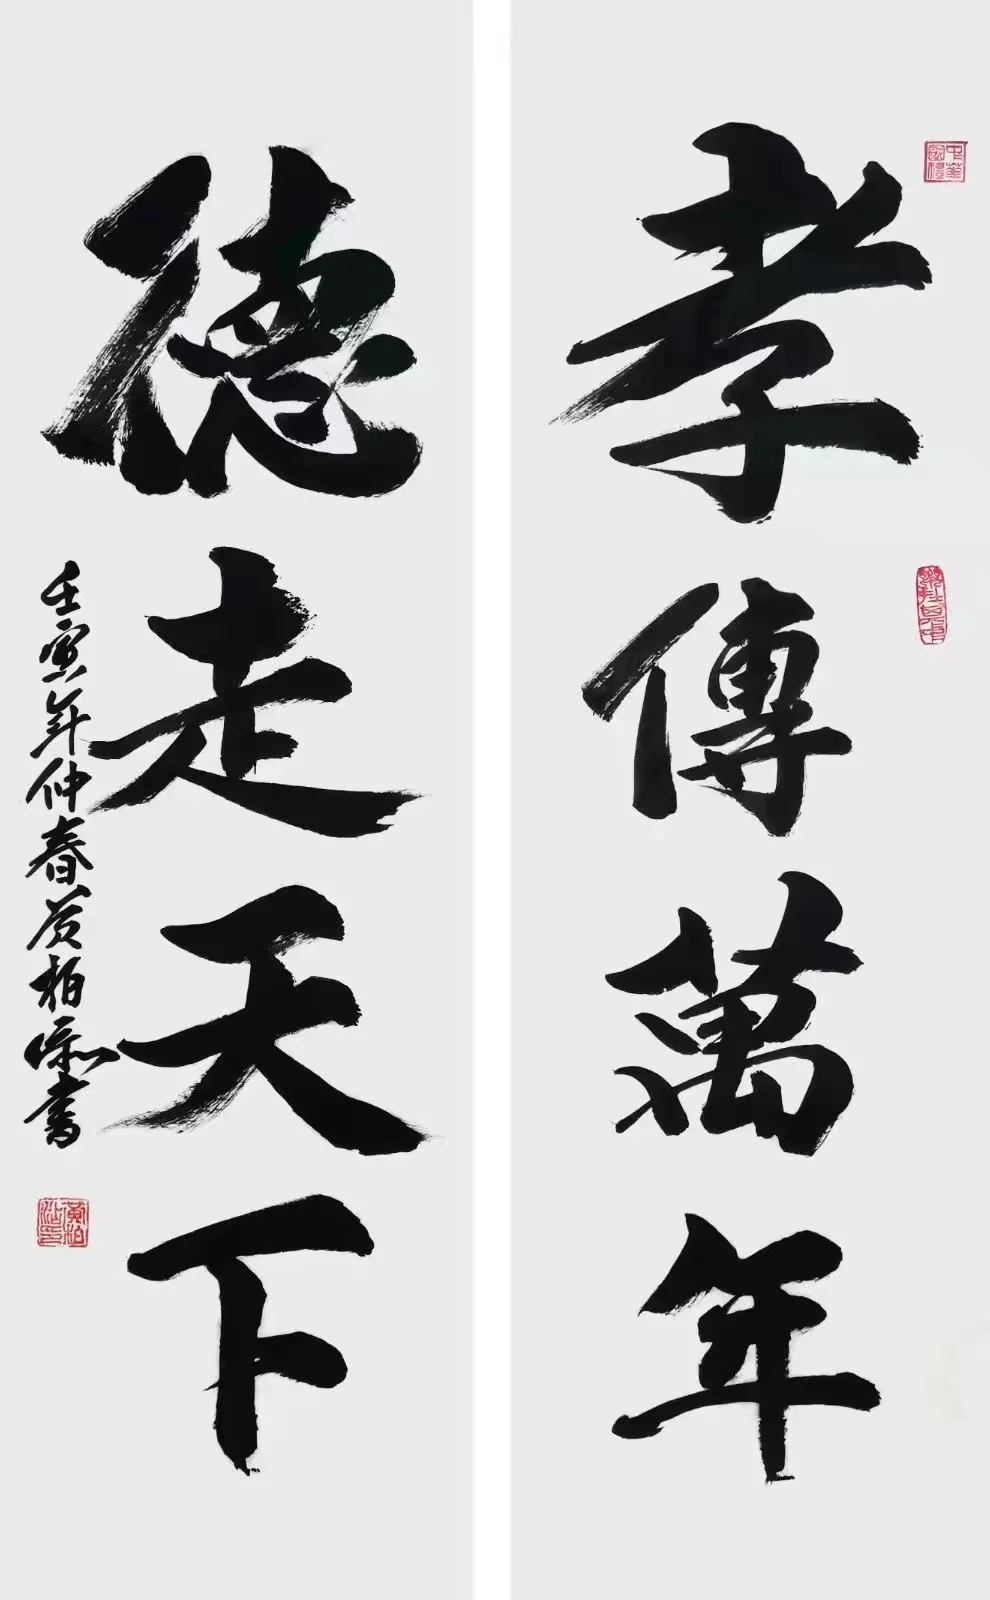 孝傳萬年
德走天下
壬寅年仲春黃柏添書